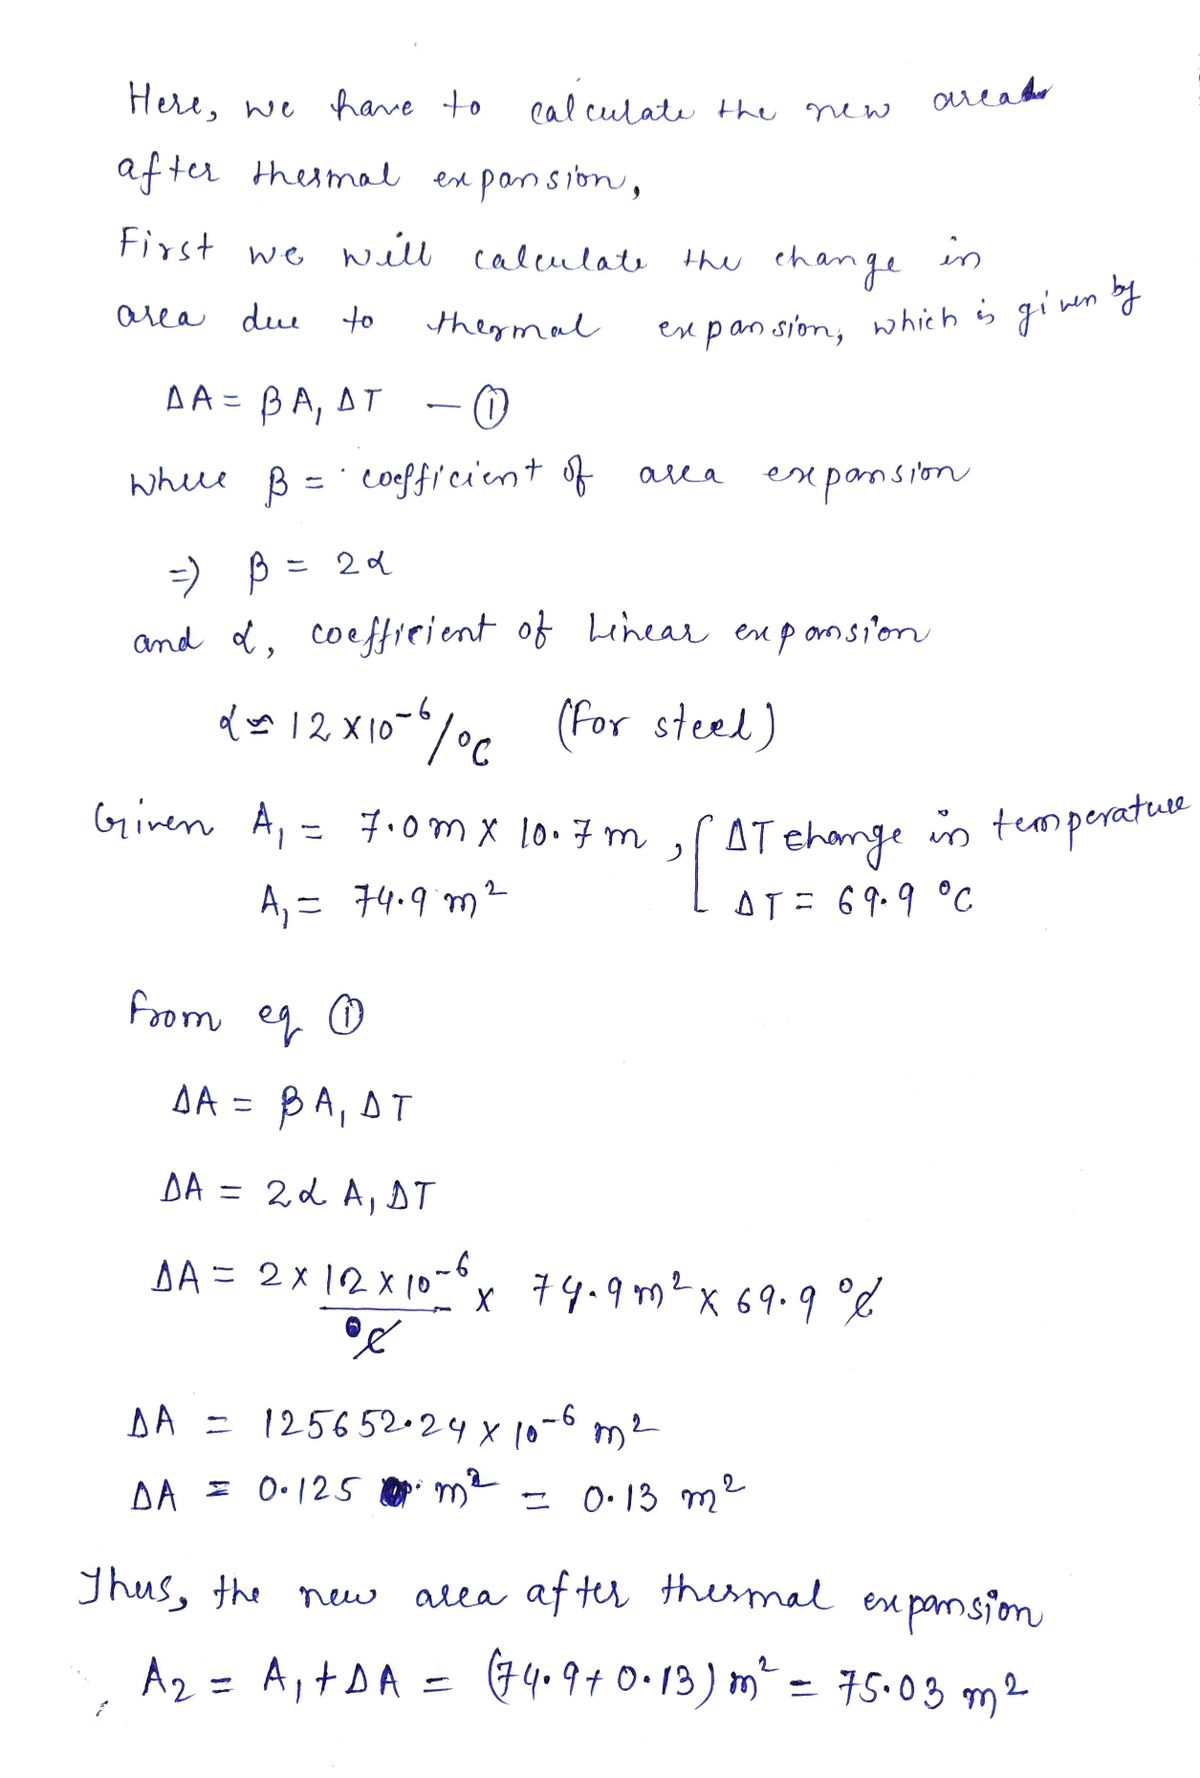 Here, we have to calculate the new area
after thermal expansion,
First we will calculate the change in
area due to thermal expansion, which is given by
ΔA = βA₁ ΔT — ①
where β = coefficient of area expansion
⇒ β = 2α
and α, coefficient of Linear expansion
α ≃ 12 × 10⁻⁶/°C (For steel)
Given A₁ = 7.0m × 10.7m , [ ΔT change in temperature
A₁ = 74.9 m² ΔT = 69.9 °C
From eq ①
ΔA = βA₁ ΔT
ΔA = 2α A₁ ΔT
ΔA = 2 × 12 × 10⁻⁶ × 74.9 m² × 69.9 °C
°C
ΔA = 125652.24 × 10⁻⁶ m²
ΔA = 0.125 m² = 0.13 m²
Thus, the new area after thermal expansion
A₂ = A₁ + ΔA = (74.9 + 0.13) m² = 75.03 m²